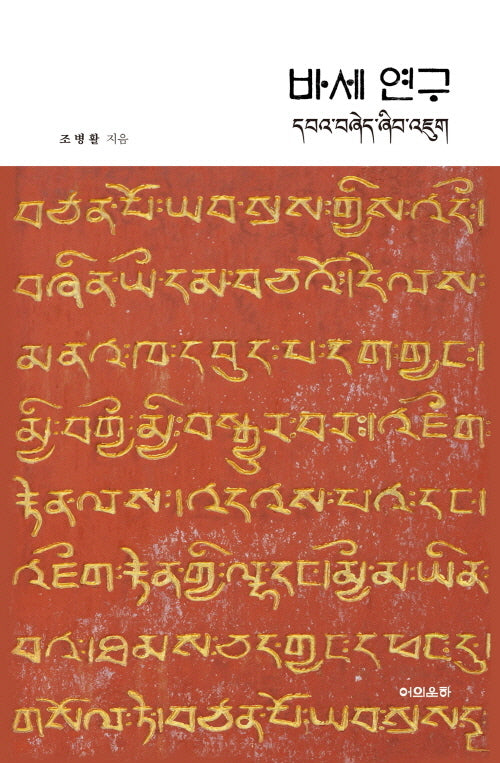 바·세 연구
དབའ་བཞེད་ཞིབ་འཇུག
조병활 지음
བཙན་པོ:ཡབ་སྲས:གྱིས་འདི:།
བཞིན་ཡི་དམ་བཅའོ:།དེ་ལས:
མནའ:ཁ:དབུད:པ:དག་གྱང:།
མྱི:བགྱི:མྱི:བསྒྱུར:བར:།འཇིག:
རྟེན་ལས:།འདའས:པའ:དང།
འཇིག:རྟེན་གྱི:ལྷ:དང།མྱི:མ:ཡིན:
བའ།ཐམས:ཅད་གྱང:དཕང:དུ།
གསོལ་ཏེ།བཙན་པོ:ཡབ:སྲས་ད
어의운하